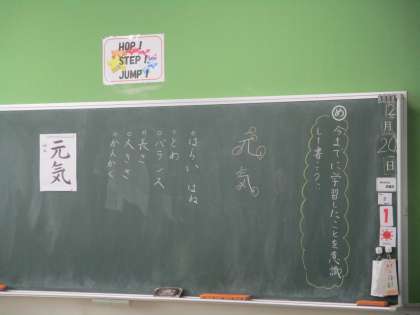 HOP!
STEP!
JUMP!
12月20日
め 今までに学習したことを意識
して書こう。
元気
。はらい はね
。とめ
。バランス
。長さ
。大きさ
。かんかく
元気
1